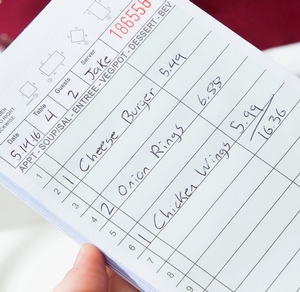 186556
Date Table Guests Server
5.14.16 4 2 Jake
APPT - SOUP/SAL - ENTREE - VEG/POT - DESSERT - BEV
1
2 1 Cheese Burger 5.49
3
4 2 Onion Rings 6.55
5
6 1 Chicken Wings 5.99
7 16.36
8
9